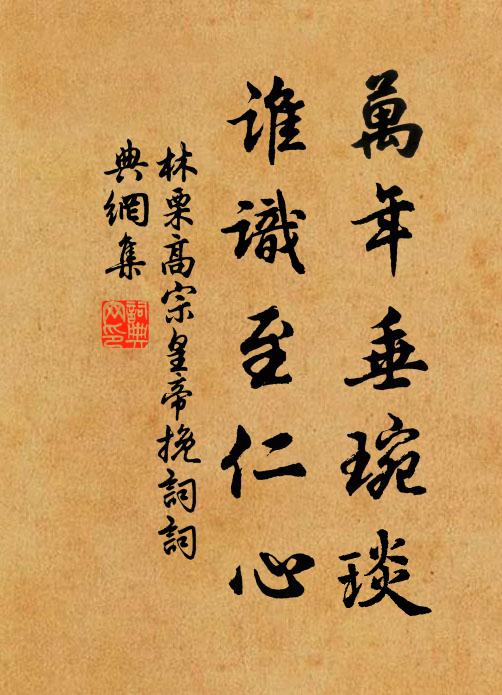 萬年垂琬琰
誰識至仁心
林栗高宗皇帝挽詞詞
典網集
詞典網印